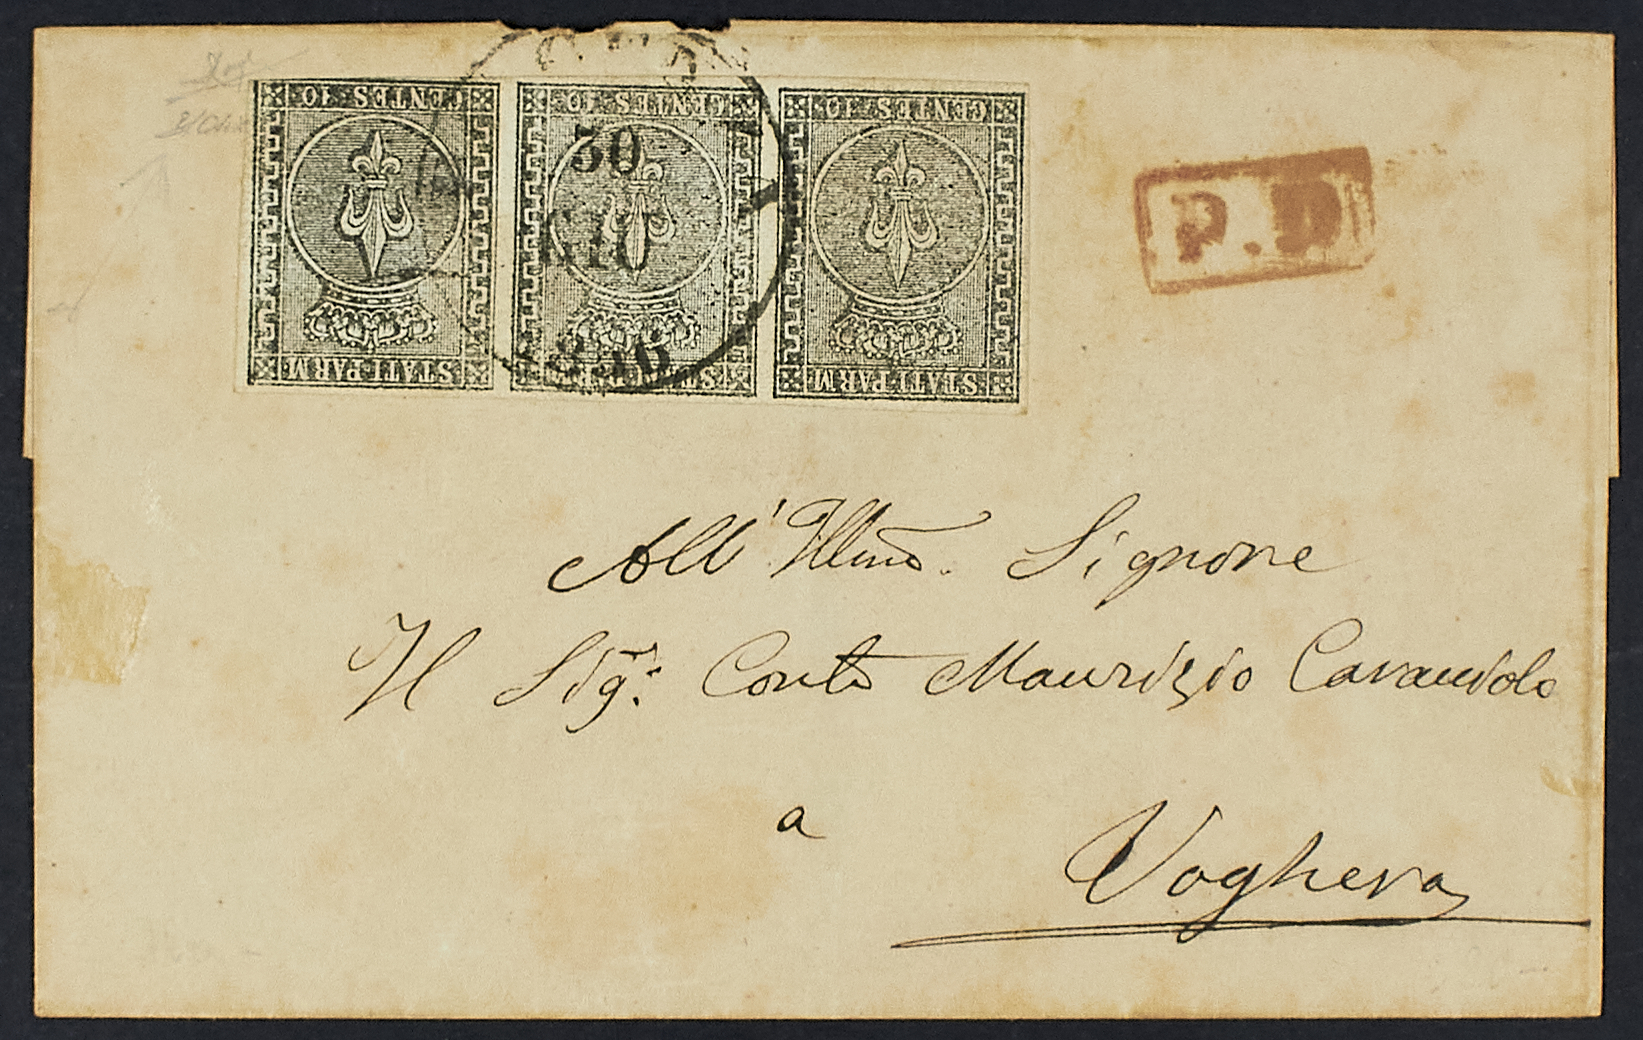 STATI PARM
CENTES. 10
STATI PARM
CENTES. 10
STATI PARM
CENTES. 10
30
GIU
P. D
All' Illmo. Signore
Il Sigr: Conte Maurizio
a
Voghera